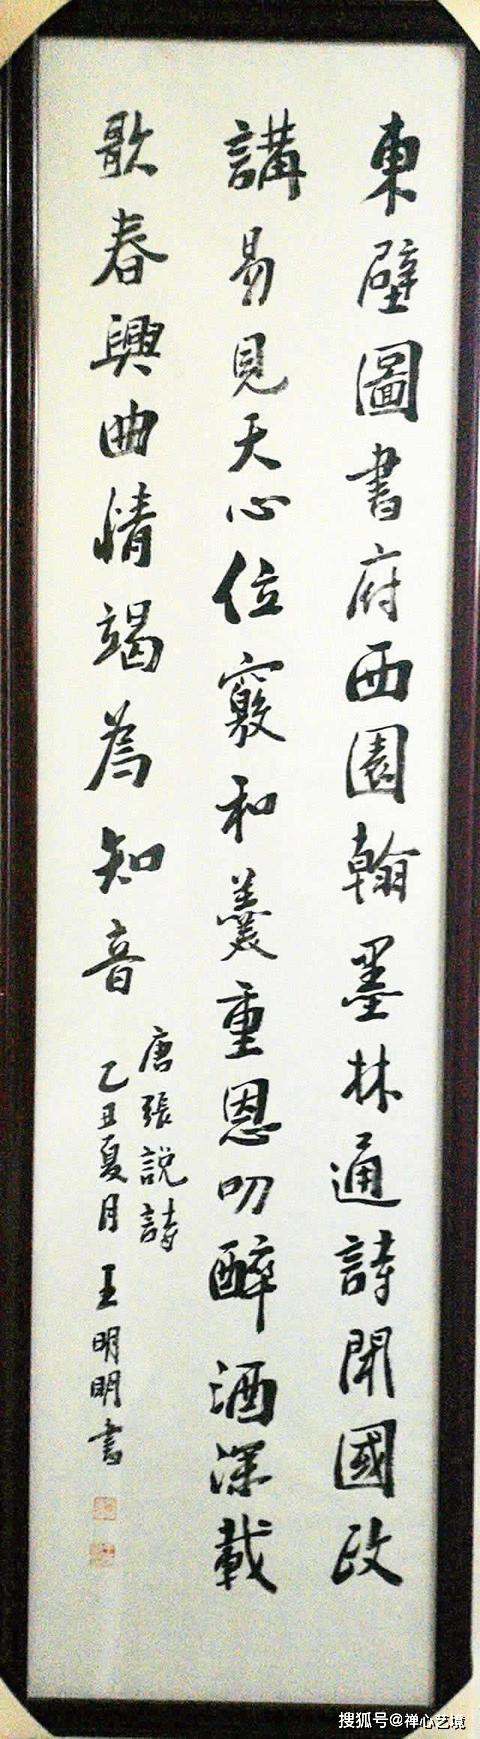 東壁圖書府西園翰墨林通詩聞國政
講易見天心位竅和羹重恩叨醉酒深載
歌春興曲情竭為知音
唐張説詩
乙丑夏月王明明書
搜狐号@禅心艺境